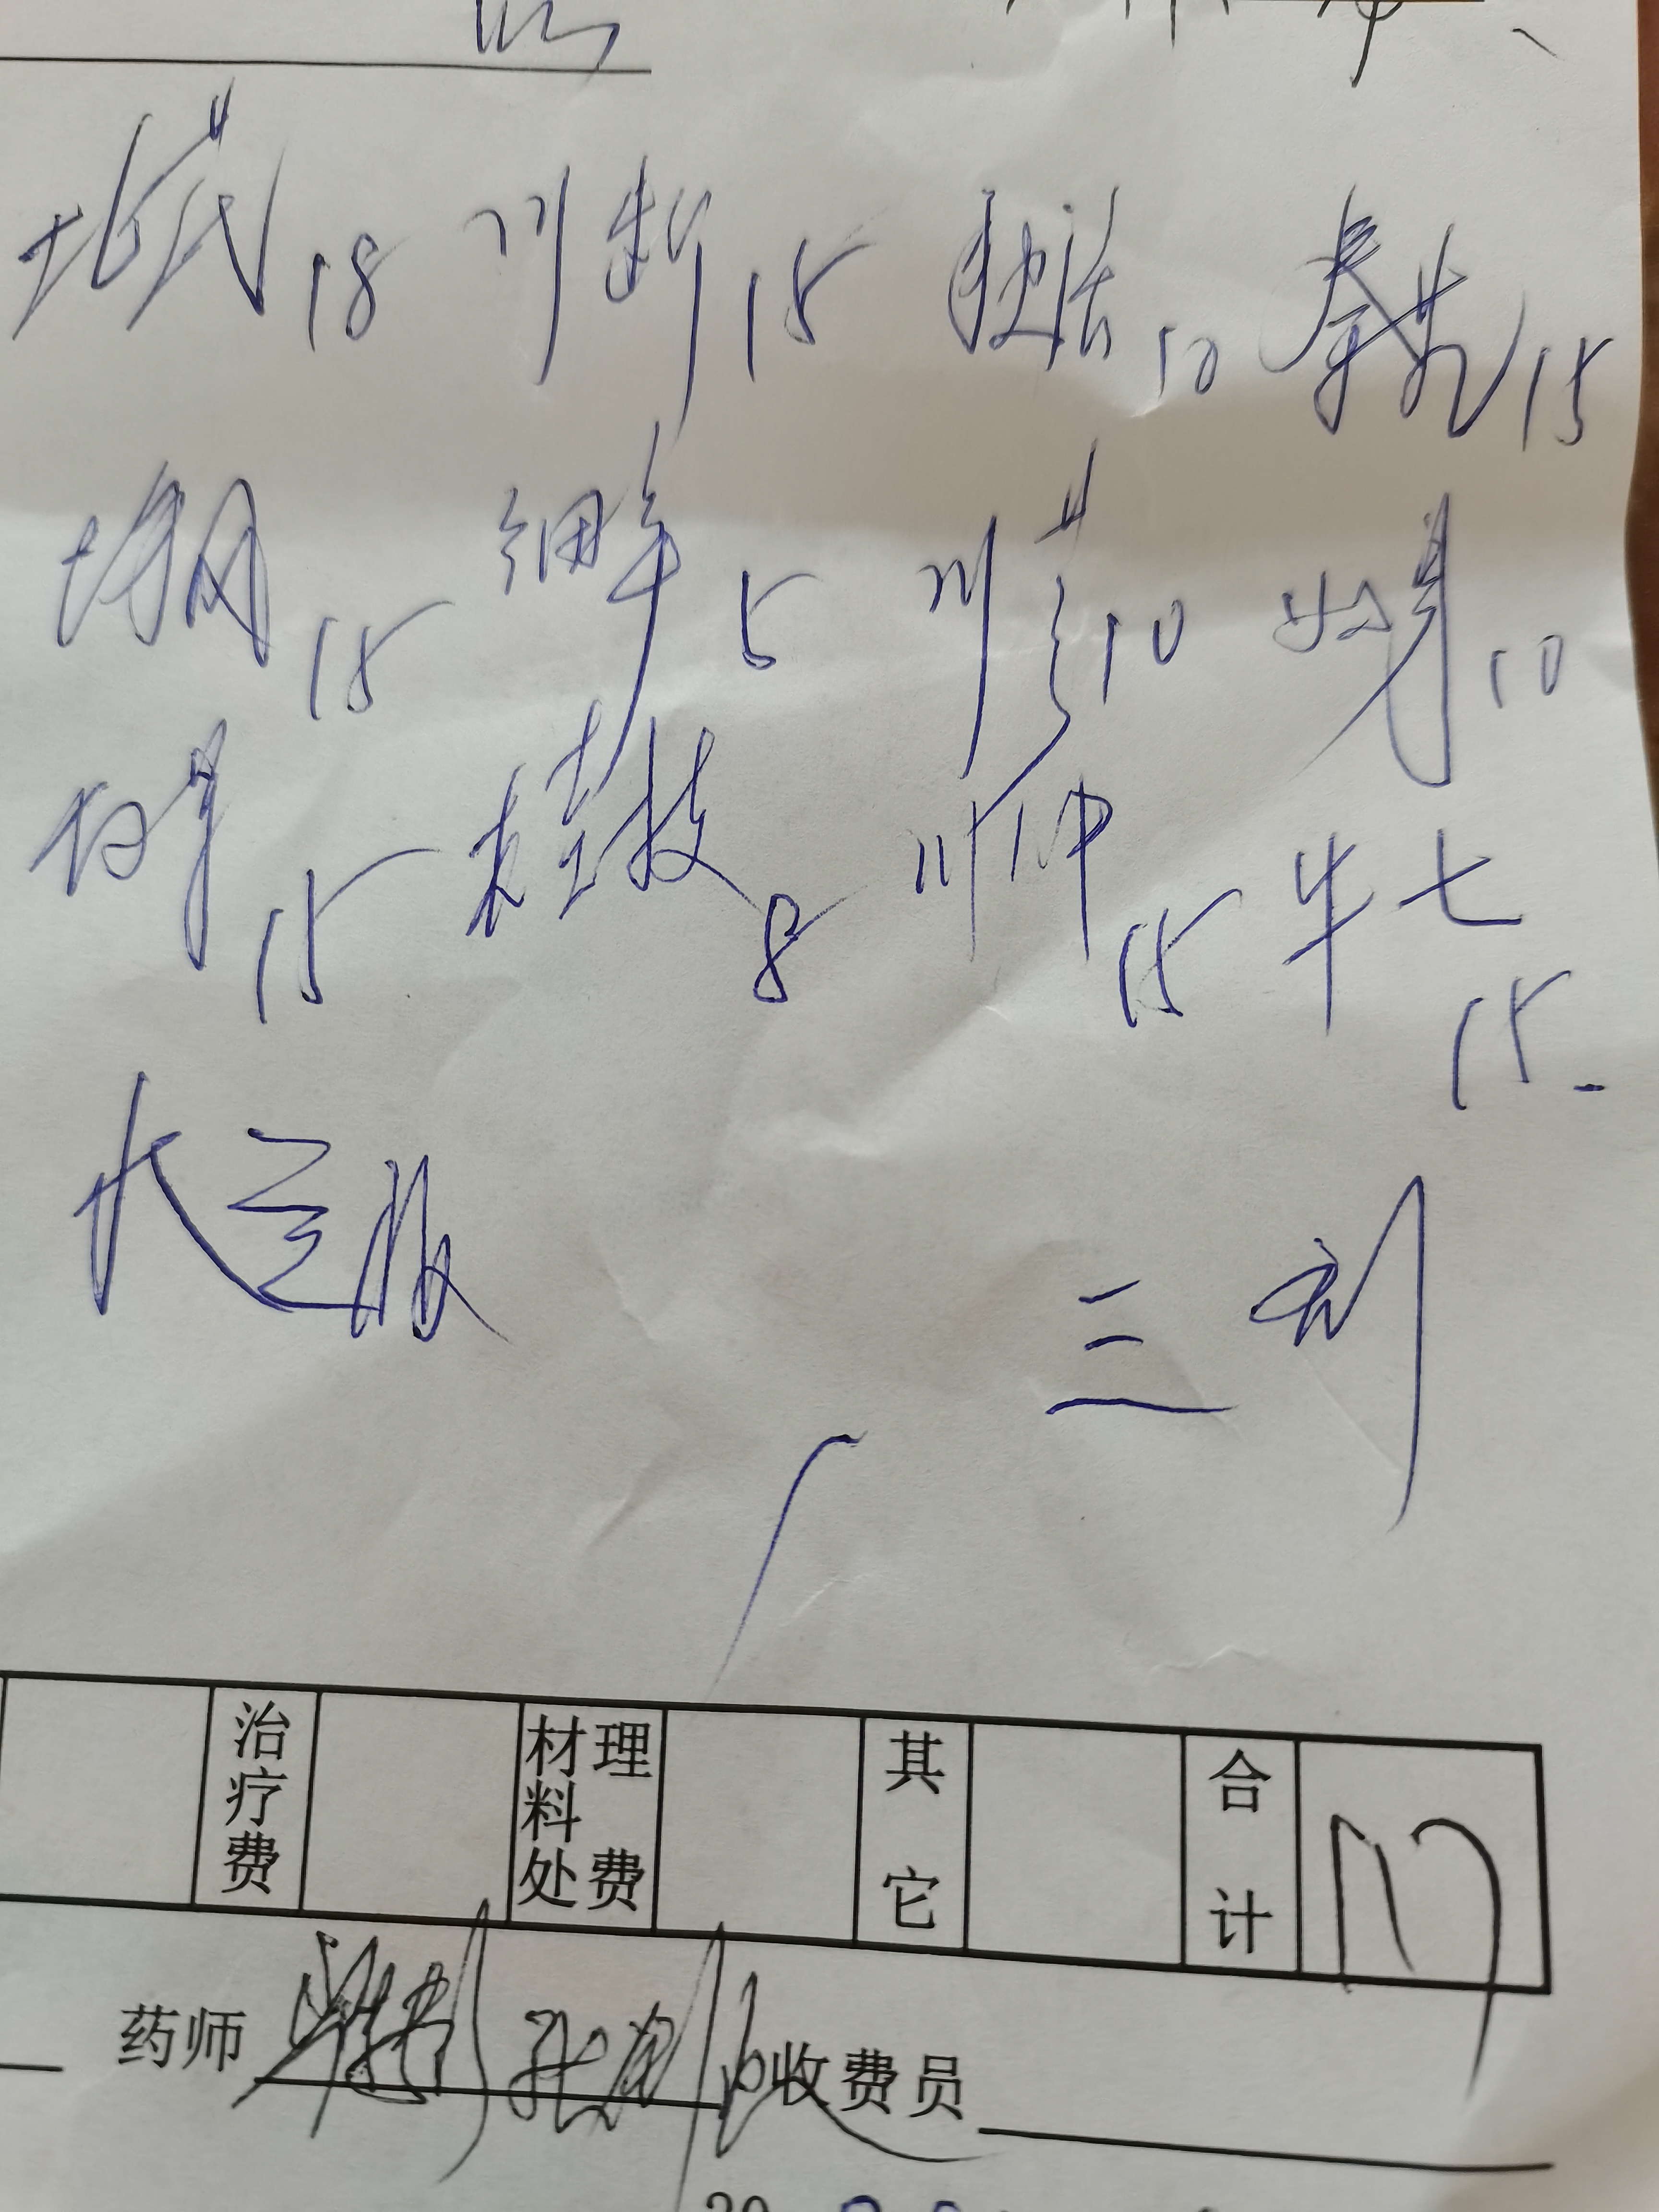 北芪18 川断15 独活10 秦艽15
防风15 细辛5 川芎10 归身10
白芍15 桂枝8 川仲15 牛七15
水煎服
三剂
治疗费 材料处理费 其它 合计
药师 收费员
20